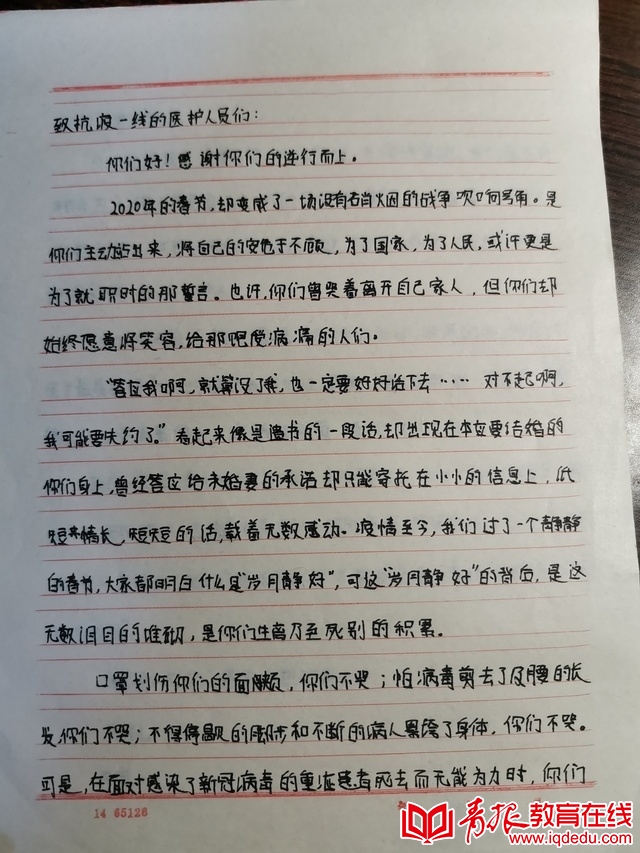 致抗疫一线的医护人员们：
你们好！感谢你们的逆行而上。
2020年的春节，却变成了一场没有硝烟的战争吹响号角。是
你们主动站出来，将自己的安危于不顾，为了国家，为了人民，或许更是
为了就职时的那誓言。也许，你们曾哭着离开自己家人，但你们却
始终愿意将笑容，给那饱受病痛的人们。
“答应我啊，就算没了我，也一定要好好活下去…… 对不起啊，
我可能要失约了。”看起来像是遗书的一段话，却出现在本应要结婚的
你们身上，曾经答应给未婚妻的承诺却只能寄托在小小的信息上，纸
短情长，短短的话，载着无数感动。疫情至今，我们过了一个静静
的春节，大家都明白什么是“岁月静好”，可这“岁月静好”的背后，是这
无数泪目的堆砌，是你们生离乃至死别的积累。
口罩划伤你们的面颊，你们不哭；怕病毒剪去了及腰的长
发，你们不哭；不得停歇的脚步和不断的病人累垮了身体，你们不哭。
可是，在面对感染了新冠病毒的重症患者死去而无能为力时，你们
14 65126
青报教育在线
www.iqdedu.com